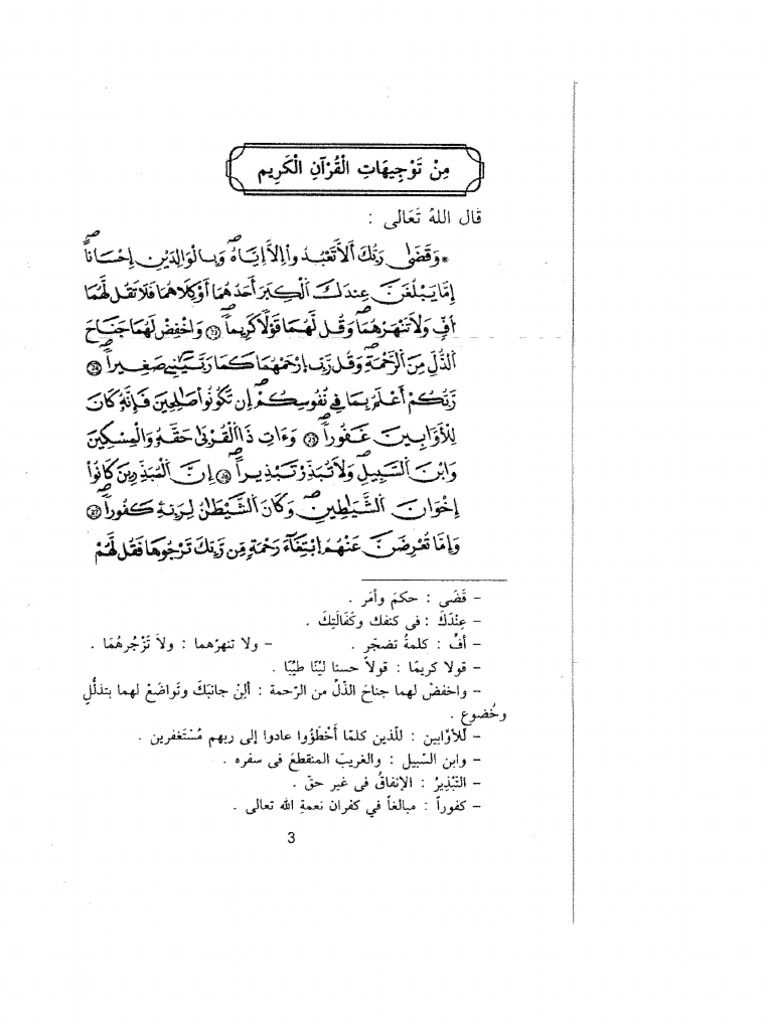 مِنْ تَوْجِيهَاتِ الْقُرْآنِ الْكَرِيم
قال اللهُ تَعَالى :
* وَقَضَىٰ رَبُّكَ أَلَّا تَعْبُدُوا إِلَّا إِيَّاهُ وَبِالْوَالِدَيْنِ إِحْسَاناً
إِمَّا يَبْلُغَنَّ عِندَكَ الْكِبَرَ أَحَدُهُمَا أَوْ كِلَاهُمَا فَلَا تَقُل لَّهُمَا
أُفٍّ وَلَا تَنْهَرْهُمَا وَقُل لَّهُمَا قَوْلًا كَرِيماً (23) وَاخْفِضْ لَهُمَا جَنَاحَ
الذُّلِّ مِنَ الرَّحْمَةِ وَقُل رَّبِّ ارْحَمْهُمَا كَمَا رَبَّيَانِي صَغِيراً (24)
رَّبُّكُمْ أَعْلَمُ بِمَا فِي نُفُوسِكُمْ إِن تَكُونُوا صَالِحِينَ فَإِنَّهُ كَانَ
لِلْأَوَّابِينَ غَفُوراً (25) وَءَاتِ ذَا الْقُرْبَىٰ حَقَّهُ وَالْمِسْكِينَ
وَابْنَ السَّبِيلِ وَلَا تُبَذِّرْ تَبْذِيراً (26) إِنَّ الْمُبَذِّرِينَ كَانُوا
إِخْوَانَ الشَّيَاطِينِ وَكَانَ الشَّيْطَانُ لِرَبِّهِ كَفُوراً (27)
وَإِمَّا تُعْرِضَنَّ عَنْهُمُ ابْتِغَاءَ رَحْمَةٍ مِّن رَّبِّكَ تَرْجُوهَا فَقُل لَّهُمْ
– قَضَى : حكمَ وأمَر .
– عِنْدَكَ : فى كنفك وكَفَالَتِكَ .
– أفّ : كلمةُ تضجّر . – ولا تنهرْهما : ولاَ تَزْجُرهُمَا .
– قولا كريمًا : قولاً حسنا ليّنًا طيّبًا .
– واخفضْ لهما جناحَ الذّلّ من الرّحمة : ألِنْ جانبَكَ وتَواضَعْ لهما بتذلُّلٍ
وخُضوعٍ .
– للأوّابين : للّذين كلمّا أخْطَؤُوا عادوا إلى ربهم مُسْتَغفرين .
– وابن السّبيل : والغريبَ المنقطعَ فى سفره .
– التّبْذِيرُ : الإنفاقُ فى غير حقّ .
– كفوراً : مبالغاً في كفران نعمةِ الله تعالى .
3